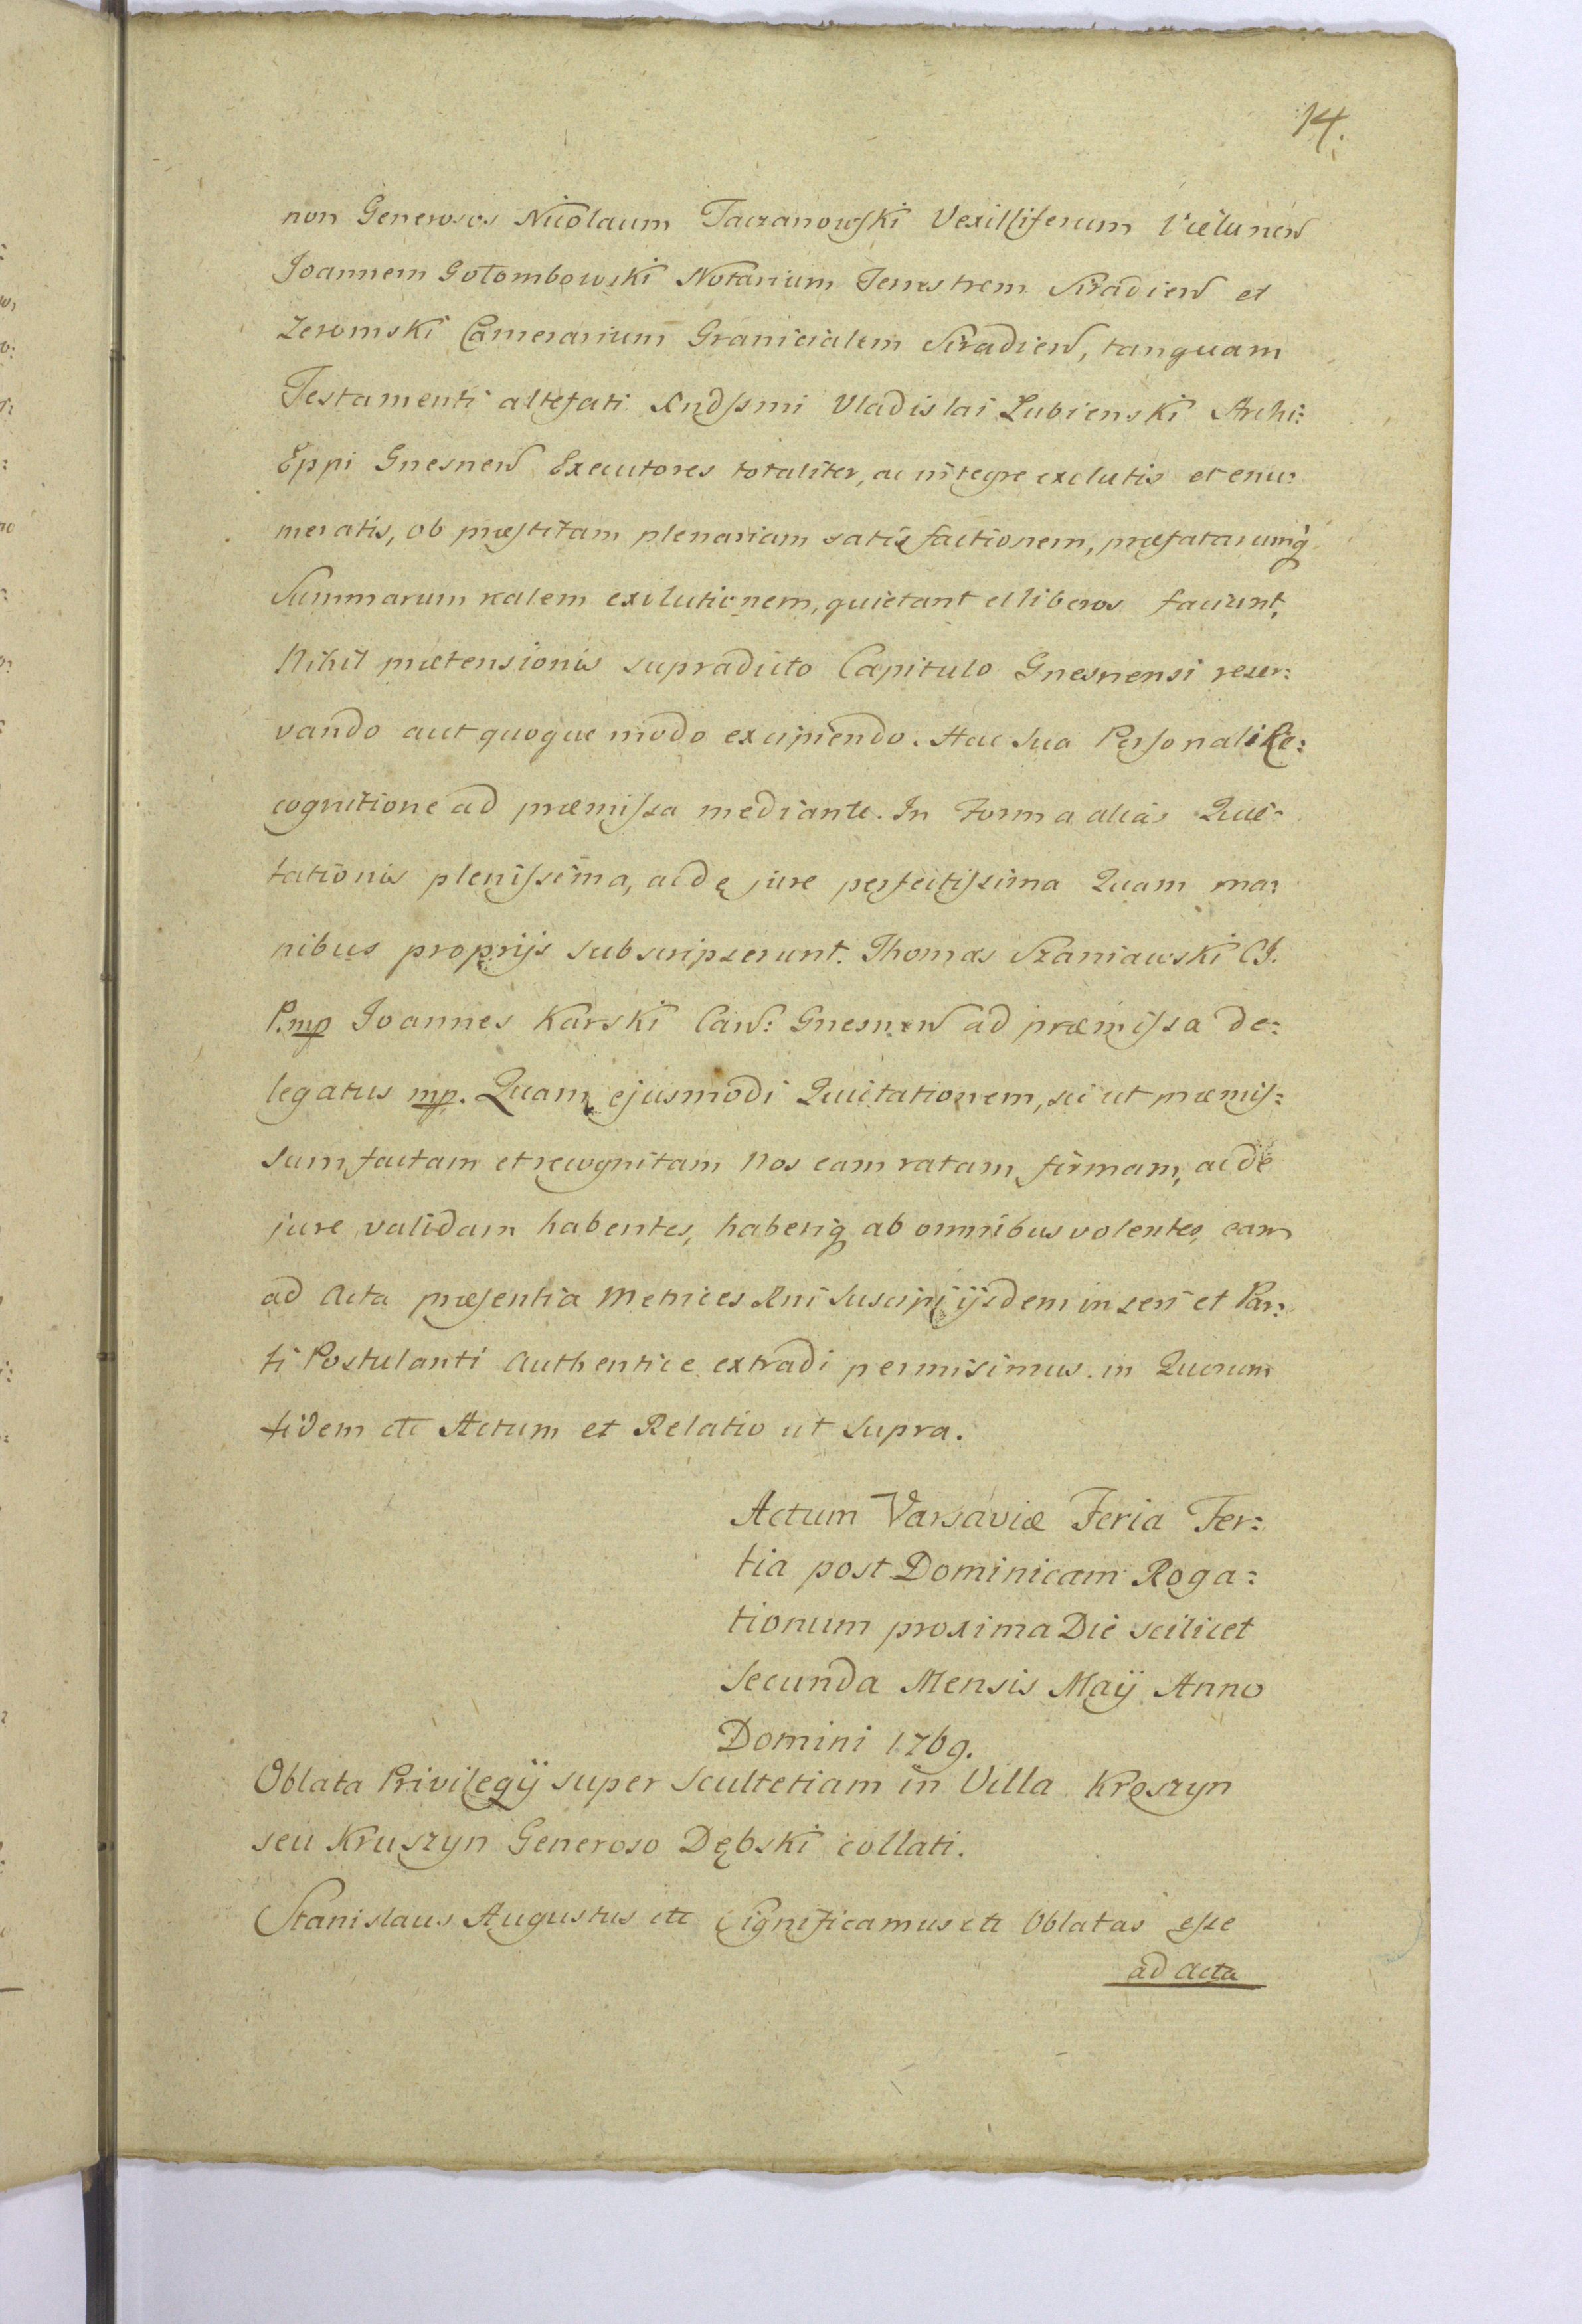 14.
non Generosos Nicolaum Taczanowski Vexilliferum Vielunen
Joannem Gołombowski Notarium Terrestrem Siradien et
Zeromski Camerarium Granicialem Siradien, tanquam
Testamenti altefati Rndssmi Vladislai Lubienski Archi:
Eppi Gnesnen Executores totaliter, ac integre exolutis et enu:
meratis, ob præstitam plenariam satisfactionem, præfatarumq
Summarum realem exolutionem, quietant et liberos faciunt,
Nihil prætensionis supradicto Capitulo Gnesnensi reser:
vando aut quoque modo excipiendo. Hac sua Personali Re:
cognitione ad præmissa mediante. In Forma alias Quie:
tationis plenissima, ac de jure perfectissima Quam ma:
nibus proprijs subscripserunt. Thomas Szaniawski CJ.
P.mp Joannes Karski Can: Gnesnen ad præmissa de:
legatus mp. Quam ejusmodi Quietationem, sic ut præmis:
sum factam et recognitam Nos eam ratam, firmam, ac de
jure validam habentes, haberiq ab omnibus volentes, eam
ad Acta præsentia Metrices Rni suscipi ijsdem inseri et Par:
ti Postulanti Authentice extradi permisimus. in Quorum
fidem etc Actum et Relatio ut supra.
Actum Varsaviæ Feria Ter:
tia post Dominicam Roga:
tionum proxima Die scilicet
Secunda Mensis Maij Anno
Domini 1769.
Oblata Privilegij super Scultetiam in Villa Kroszyn
seu Kruszyn Generoso Dębski collati.
Stanislaus Augustus etc Significamus etc Oblatas esse
ad Acta